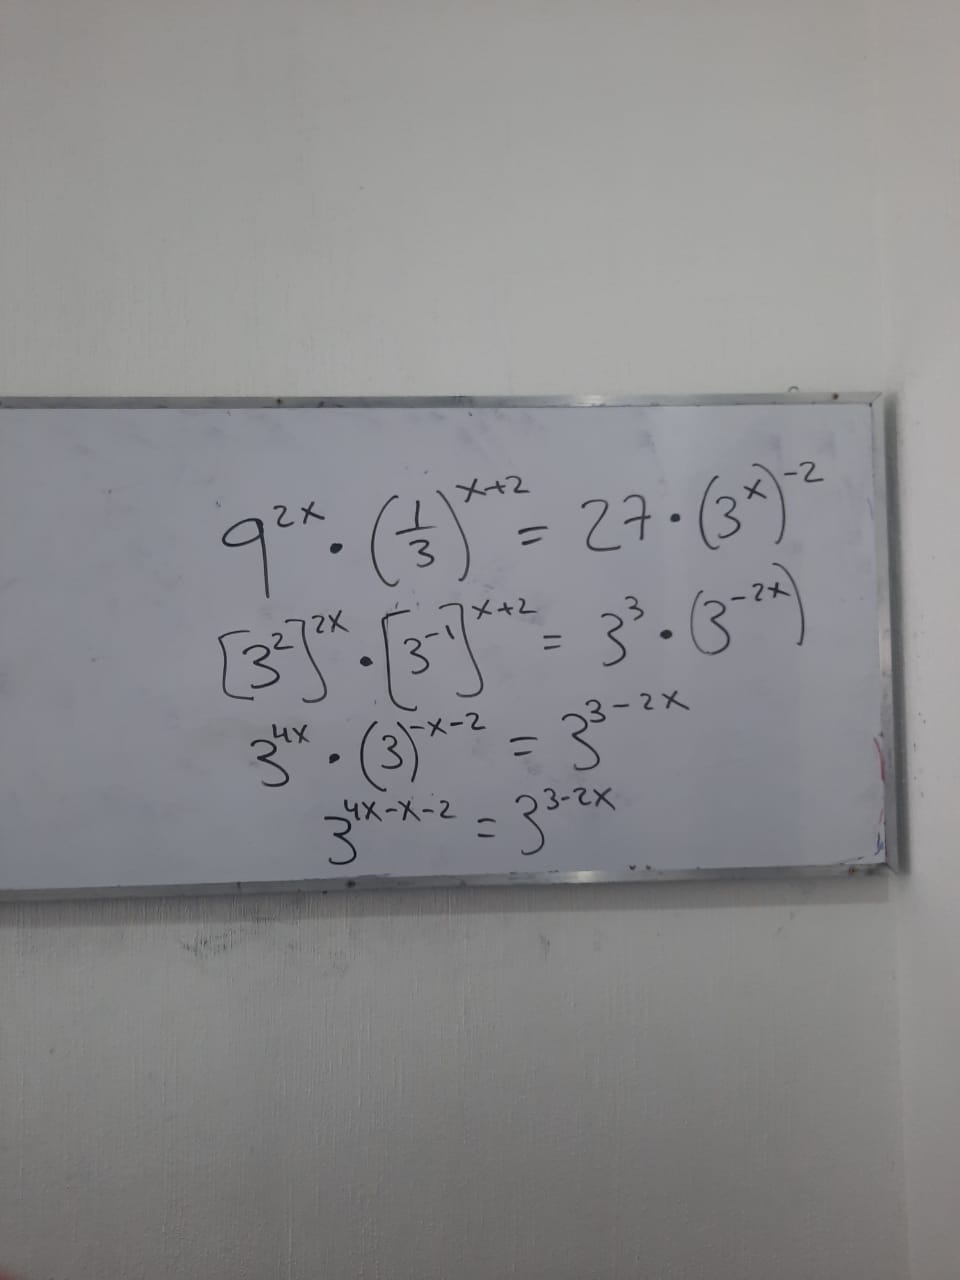 9^{2x} · (1/3)^{x+2} = 27 · (3^x)^{-2}
[3^2]^{2x} · [3^{-1}]^{x+2} = 3^3 · (3^{-2x})
3^{4x} · (3)^{-x-2} = 3^{3-2x}
3^{4x-x-2} = 3^{3-2x}